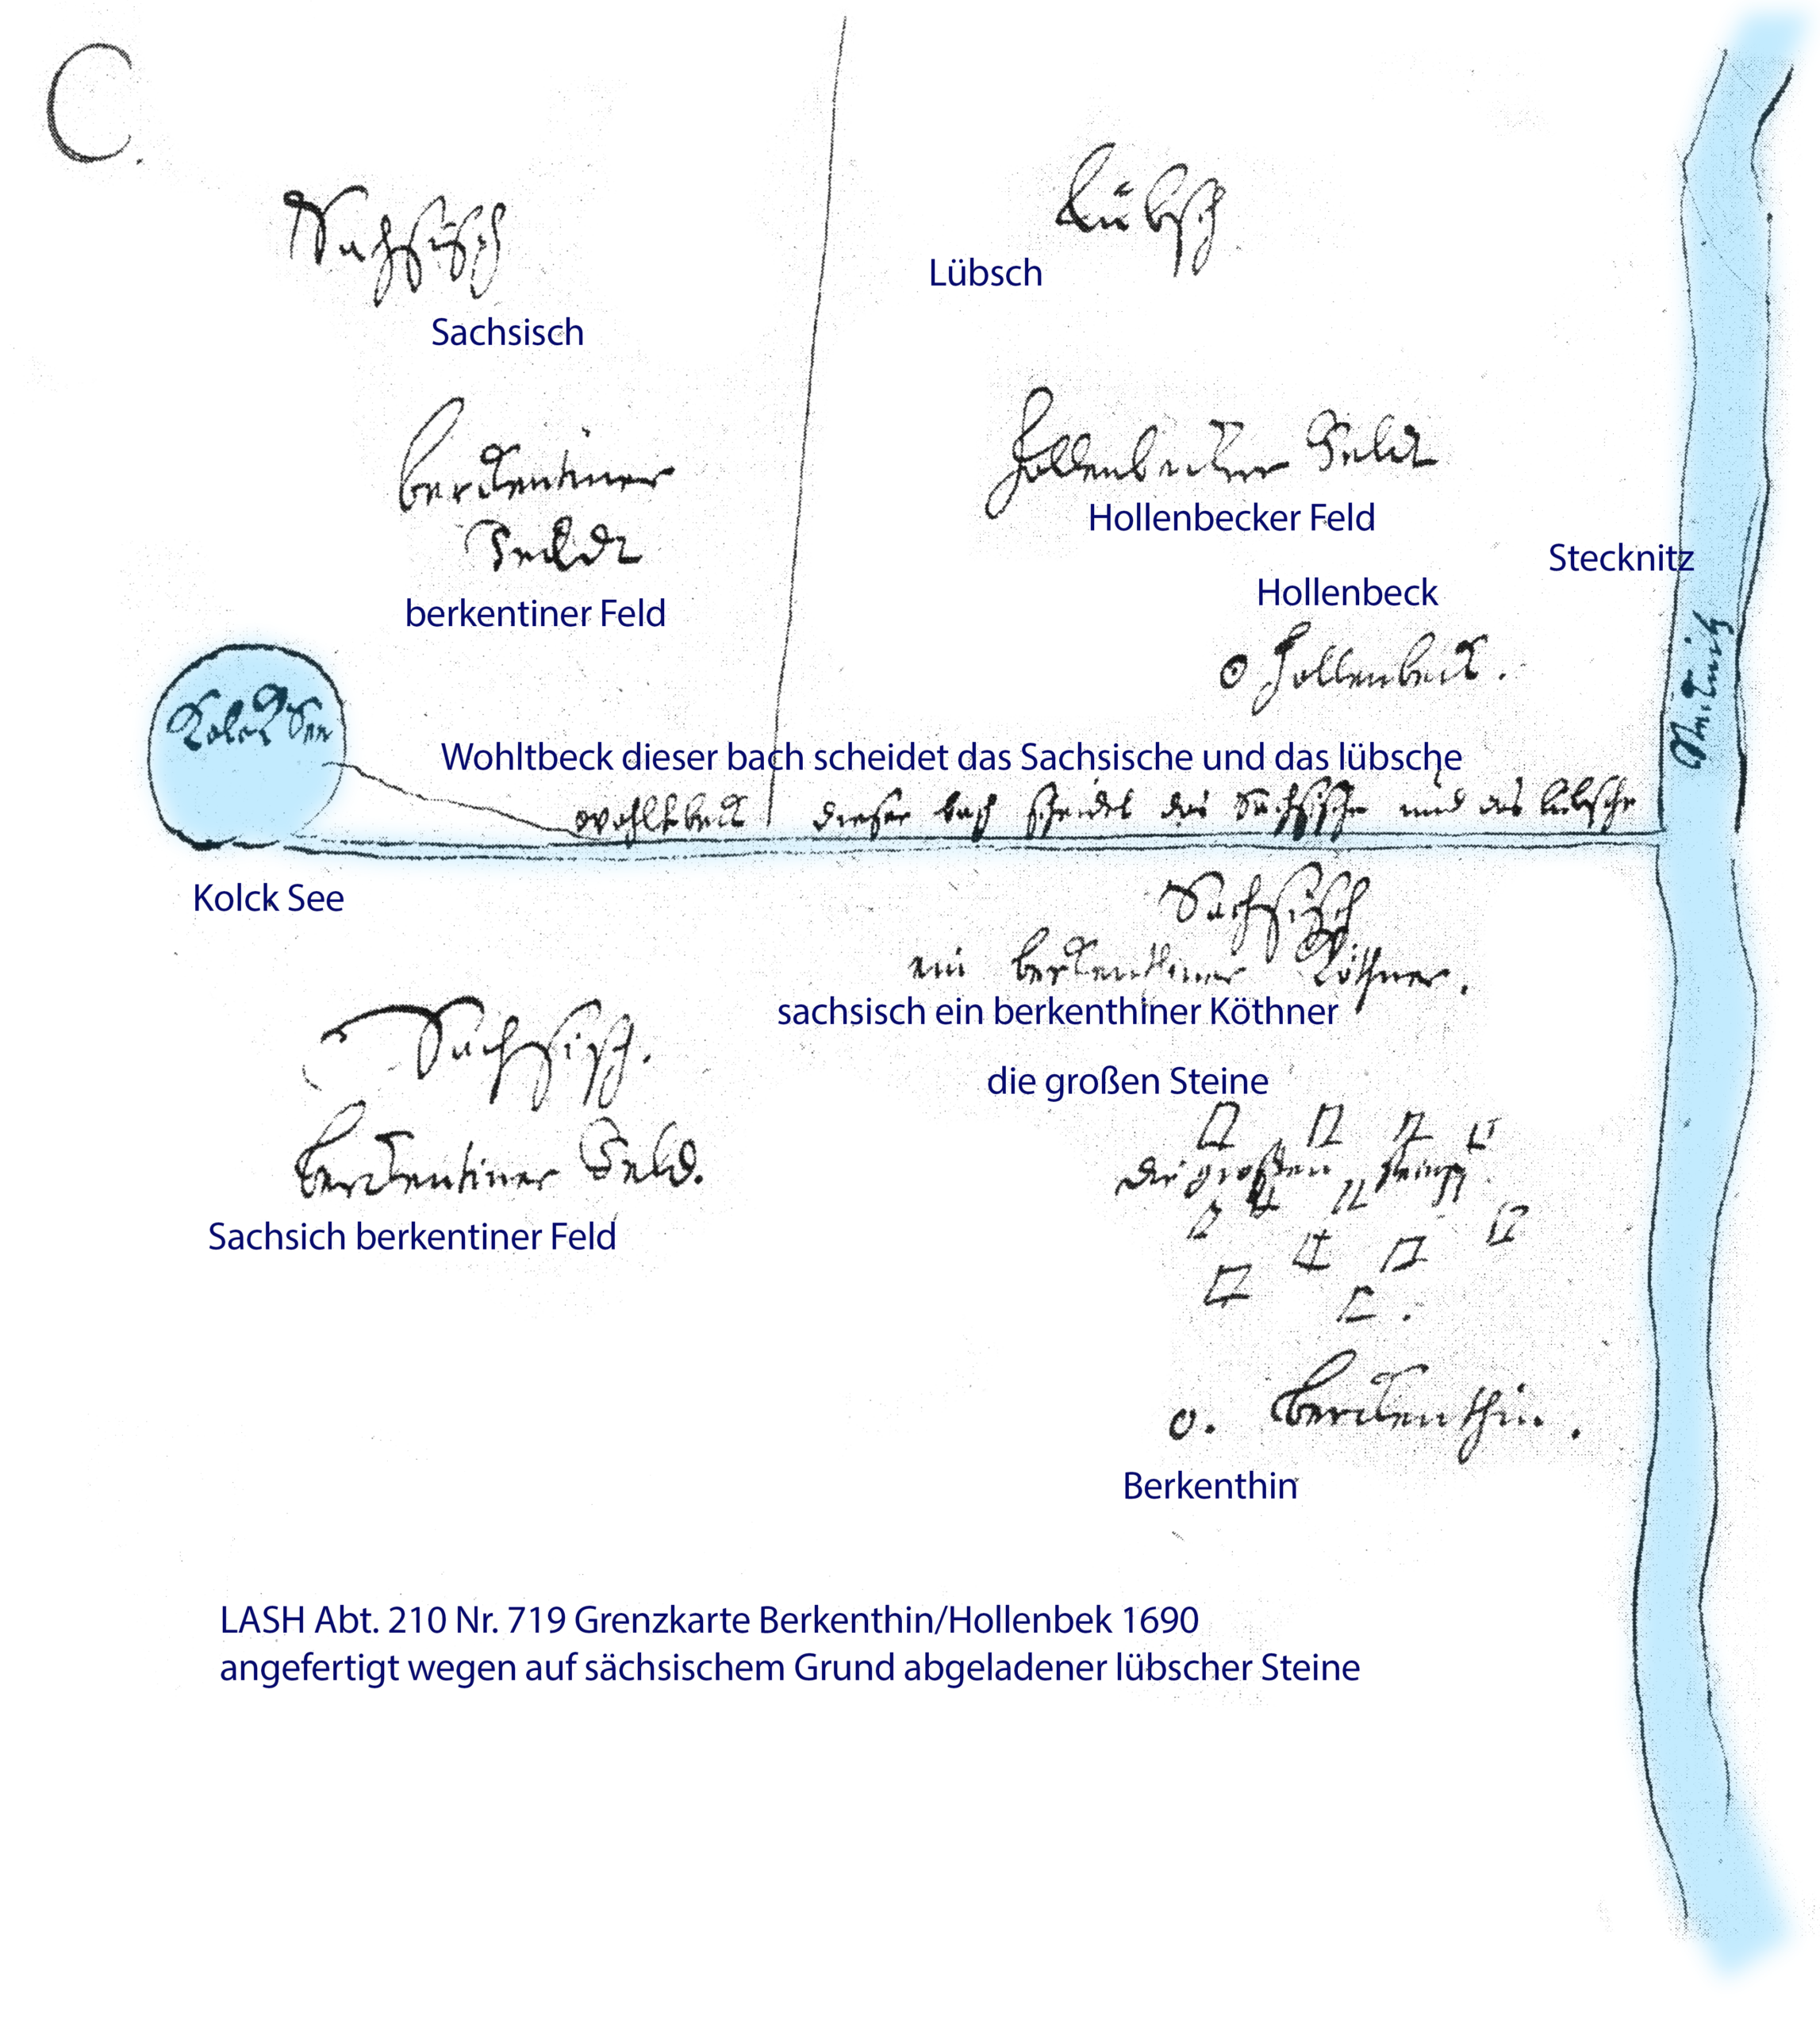 C.
Sachsisch
Lübsch
Lübsch
Sachsisch
berckentiner
Feldt
Hollenbecker Feldt
Hollenbecker Feld
Stecknitz
Hollenbeck
berkentiner Feld
Hollenbeck.
Stecknitz
Kolck See
Wohltbeck dieser bach scheidet das Sachsische und das lübsche
wohltbeck dieser bach scheidet das Sachsische und das lübsche
Kolck See
Sachsisch
ein berckenthiner Köthner.
sachsisch ein berkenthiner Köthner
Sachsisch.
die großen Steine
berckentiner Feld.
die großen steine
Sachsich berkentiner Feld
o. Berckenthin.
Berkenthin
LASH Abt. 210 Nr. 719 Grenzkarte Berkenthin/Hollenbek 1690
angefertigt wegen auf sächsischem Grund abgeladener lübscher Steine